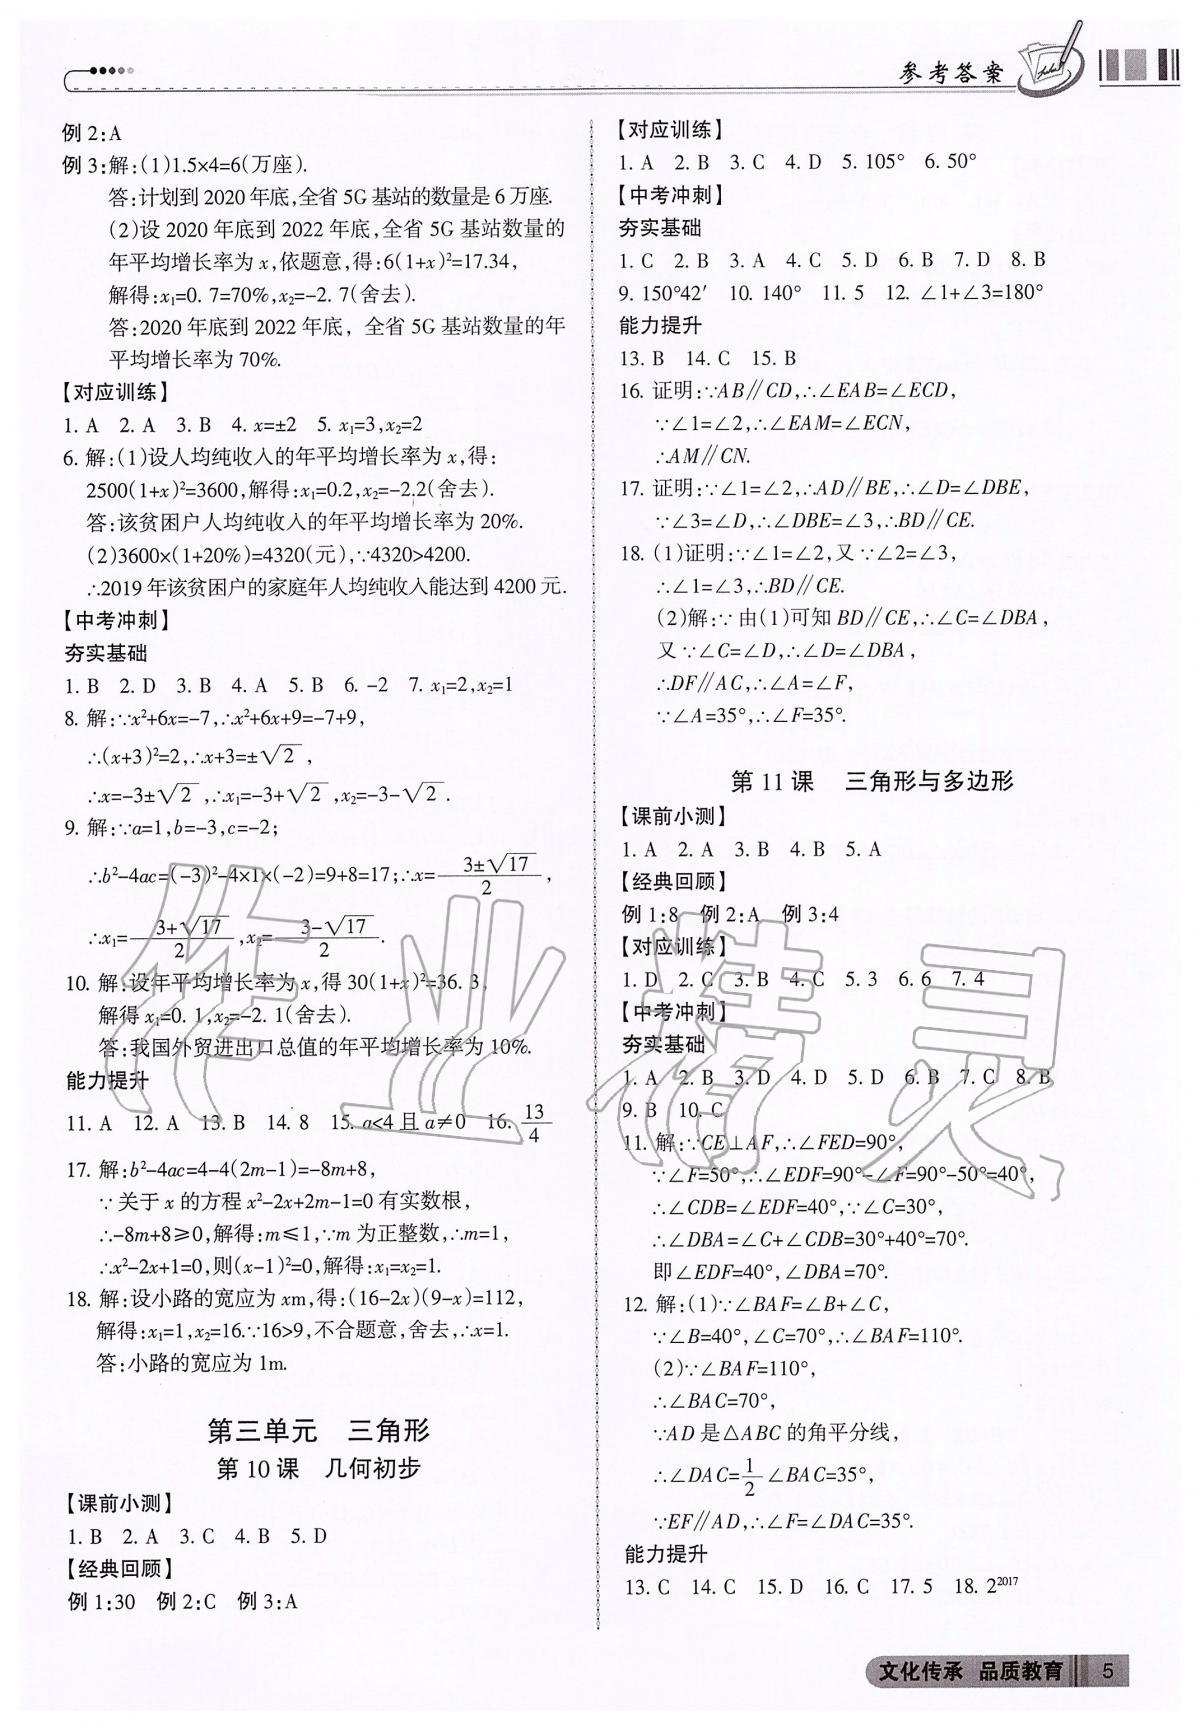 参考答案
例 2:A
例 3:解:(1)1.5×4=6(万座).
答:计划到 2020 年底,全省 5G 基站的数量是 6 万座.
(2)设 2020 年底到 2022 年底,全省 5G 基站数量的
年平均增长率为 x,依题意,得:6(1+x)²=17.34,
解得:x₁=0. 7=70%,x₂=-2. 7(舍去).
答:2020 年底到 2022 年底, 全省 5G 基站数量的年
平均增长率为 70%.
【对应训练】
1. A 2. A 3. B 4. x=±2 5. x₁=3,x₂=2
6. 解:(1)设人均纯收入的年平均增长率为 x,得:
2500(1+x)²=3600,解得:x₁=0.2,x₂=-2.2(舍去).
答:该贫困户人均纯收入的年平均增长率为 20%.
(2)3600×(1+20%)=4320(元),∵4320>4200.
∴2019 年该贫困户的家庭年人均纯收入能达到 4200 元.
【中考冲刺】
夯实基础
1. B 2. D 3. B 4. A 5. B 6. -2 7. x₁=2,x₂=1
8. 解:∵x²+6x=-7,∴x²+6x+9=-7+9,
∴(x+3)²=2,∴x+3=±√2 ,
∴x=-3±√2 ,∴x₁=-3+√2 ,x₂=-3-√2 .
9. 解:∵a=1,b=-3,c=-2;
∴b²-4ac=(-3)²-4×1×(-2)=9+8=17;∴x=(3±√17)/2,
∴x₁=(3+√17)/2,x₂=(3-√17)/2.
10. 解:设年平均增长率为 x,得 30(1+x)²=36. 3,
解得 x₁=0. 1,x₂=-2. 1(舍去).
答:我国外贸进出口总值的年平均增长率为 10%.
能力提升
11. A 12. A 13. B 14. 8 15. a<4 且 a≠0 16. 13/4
17. 解:b²-4ac=4-4(2m-1)=-8m+8,
∵关于 x 的方程 x²-2x+2m-1=0 有实数根,
∴-8m+8≥0,解得:m≤1,∵m 为正整数,∴m=1,
∴x²-2x+1=0,则(x-1)²=0,解得:x₁=x₂=1.
18. 解:设小路的宽应为 xm,得:(16-2x)(9-x)=112,
解得:x₁=1,x₂=16.∵16>9,不合题意,舍去,∴x=1.
答:小路的宽应为 1m.
第三单元 三角形
第 10 课 几何初步
【课前小测】
1. B 2. A 3. C 4. B 5. D
【经典回顾】
例 1:30 例 2:C 例 3:A
【对应训练】
1. A 2. B 3. C 4. D 5. 105° 6. 50°
【中考冲刺】
夯实基础
1. C 2. B 3. A 4. C 5. D 6. B 7. D 8. B
9. 150°42′ 10. 140° 11. 5 12. ∠1+∠3=180°
能力提升
13. B 14. C 15. B
16. 证明:∵AB∥CD,∴∠EAB=∠ECD,
∵∠1=∠2,∴∠EAM=∠ECN,
∴AM∥CN.
17. 证明:∵∠1=∠2,∴AD∥BE,∴∠D=∠DBE,
∵∠3=∠D,∴∠DBE=∠3,∴BD∥CE.
18. (1)证明:∵∠1=∠2,又∵∠2=∠3,
∴∠1=∠3,∴BD∥CE.
(2)解:∵由(1)可知 BD∥CE,∴∠C=∠DBA,
又∵∠C=∠D,∴∠D=∠DBA,
∴DF∥AC,∴∠A=∠F,
∵∠A=35°,∴∠F=35°.
第 11 课 三角形与多边形
【课前小测】
1. A 2. A 3. B 4. B 5. A
【经典回顾】
例 1:8 例 2:A 例 3:4
【对应训练】
1. D 2. C 3. B 4. C 5. 3 6. 6 7. 4
【中考冲刺】
夯实基础
1. A 2. B 3. D 4. D 5. D 6. B 7. C 8. B
9. B 10. C
11. 解:∵CE⊥AF,∴∠FED=90°,
∵∠F=50°,∴∠EDF=90°-∠F=90°-50°=40°,
∴∠CDB=∠EDF=40°,∵∠C=30°,
∴∠DBA=∠C+∠CDB=30°+40°=70°.
即∠EDF=40°,∠DBA=70°.
12. 解:(1)∵∠BAF=∠B+∠C,
∵∠B=40°,∠C=70°,∴∠BAF=110°.
(2)∵∠BAF=110°,
∴∠BAC=70°,
∵AD 是△ABC 的角平分线,
∴∠DAC=1/2∠BAC=35°,
∵EF∥AD,∴∠F=∠DAC=35°.
能力提升
13. C 14. C 15. D 16. C 17. 5 18. 2²⁰¹⁷
作业精灵
文化传承 品质教育 5